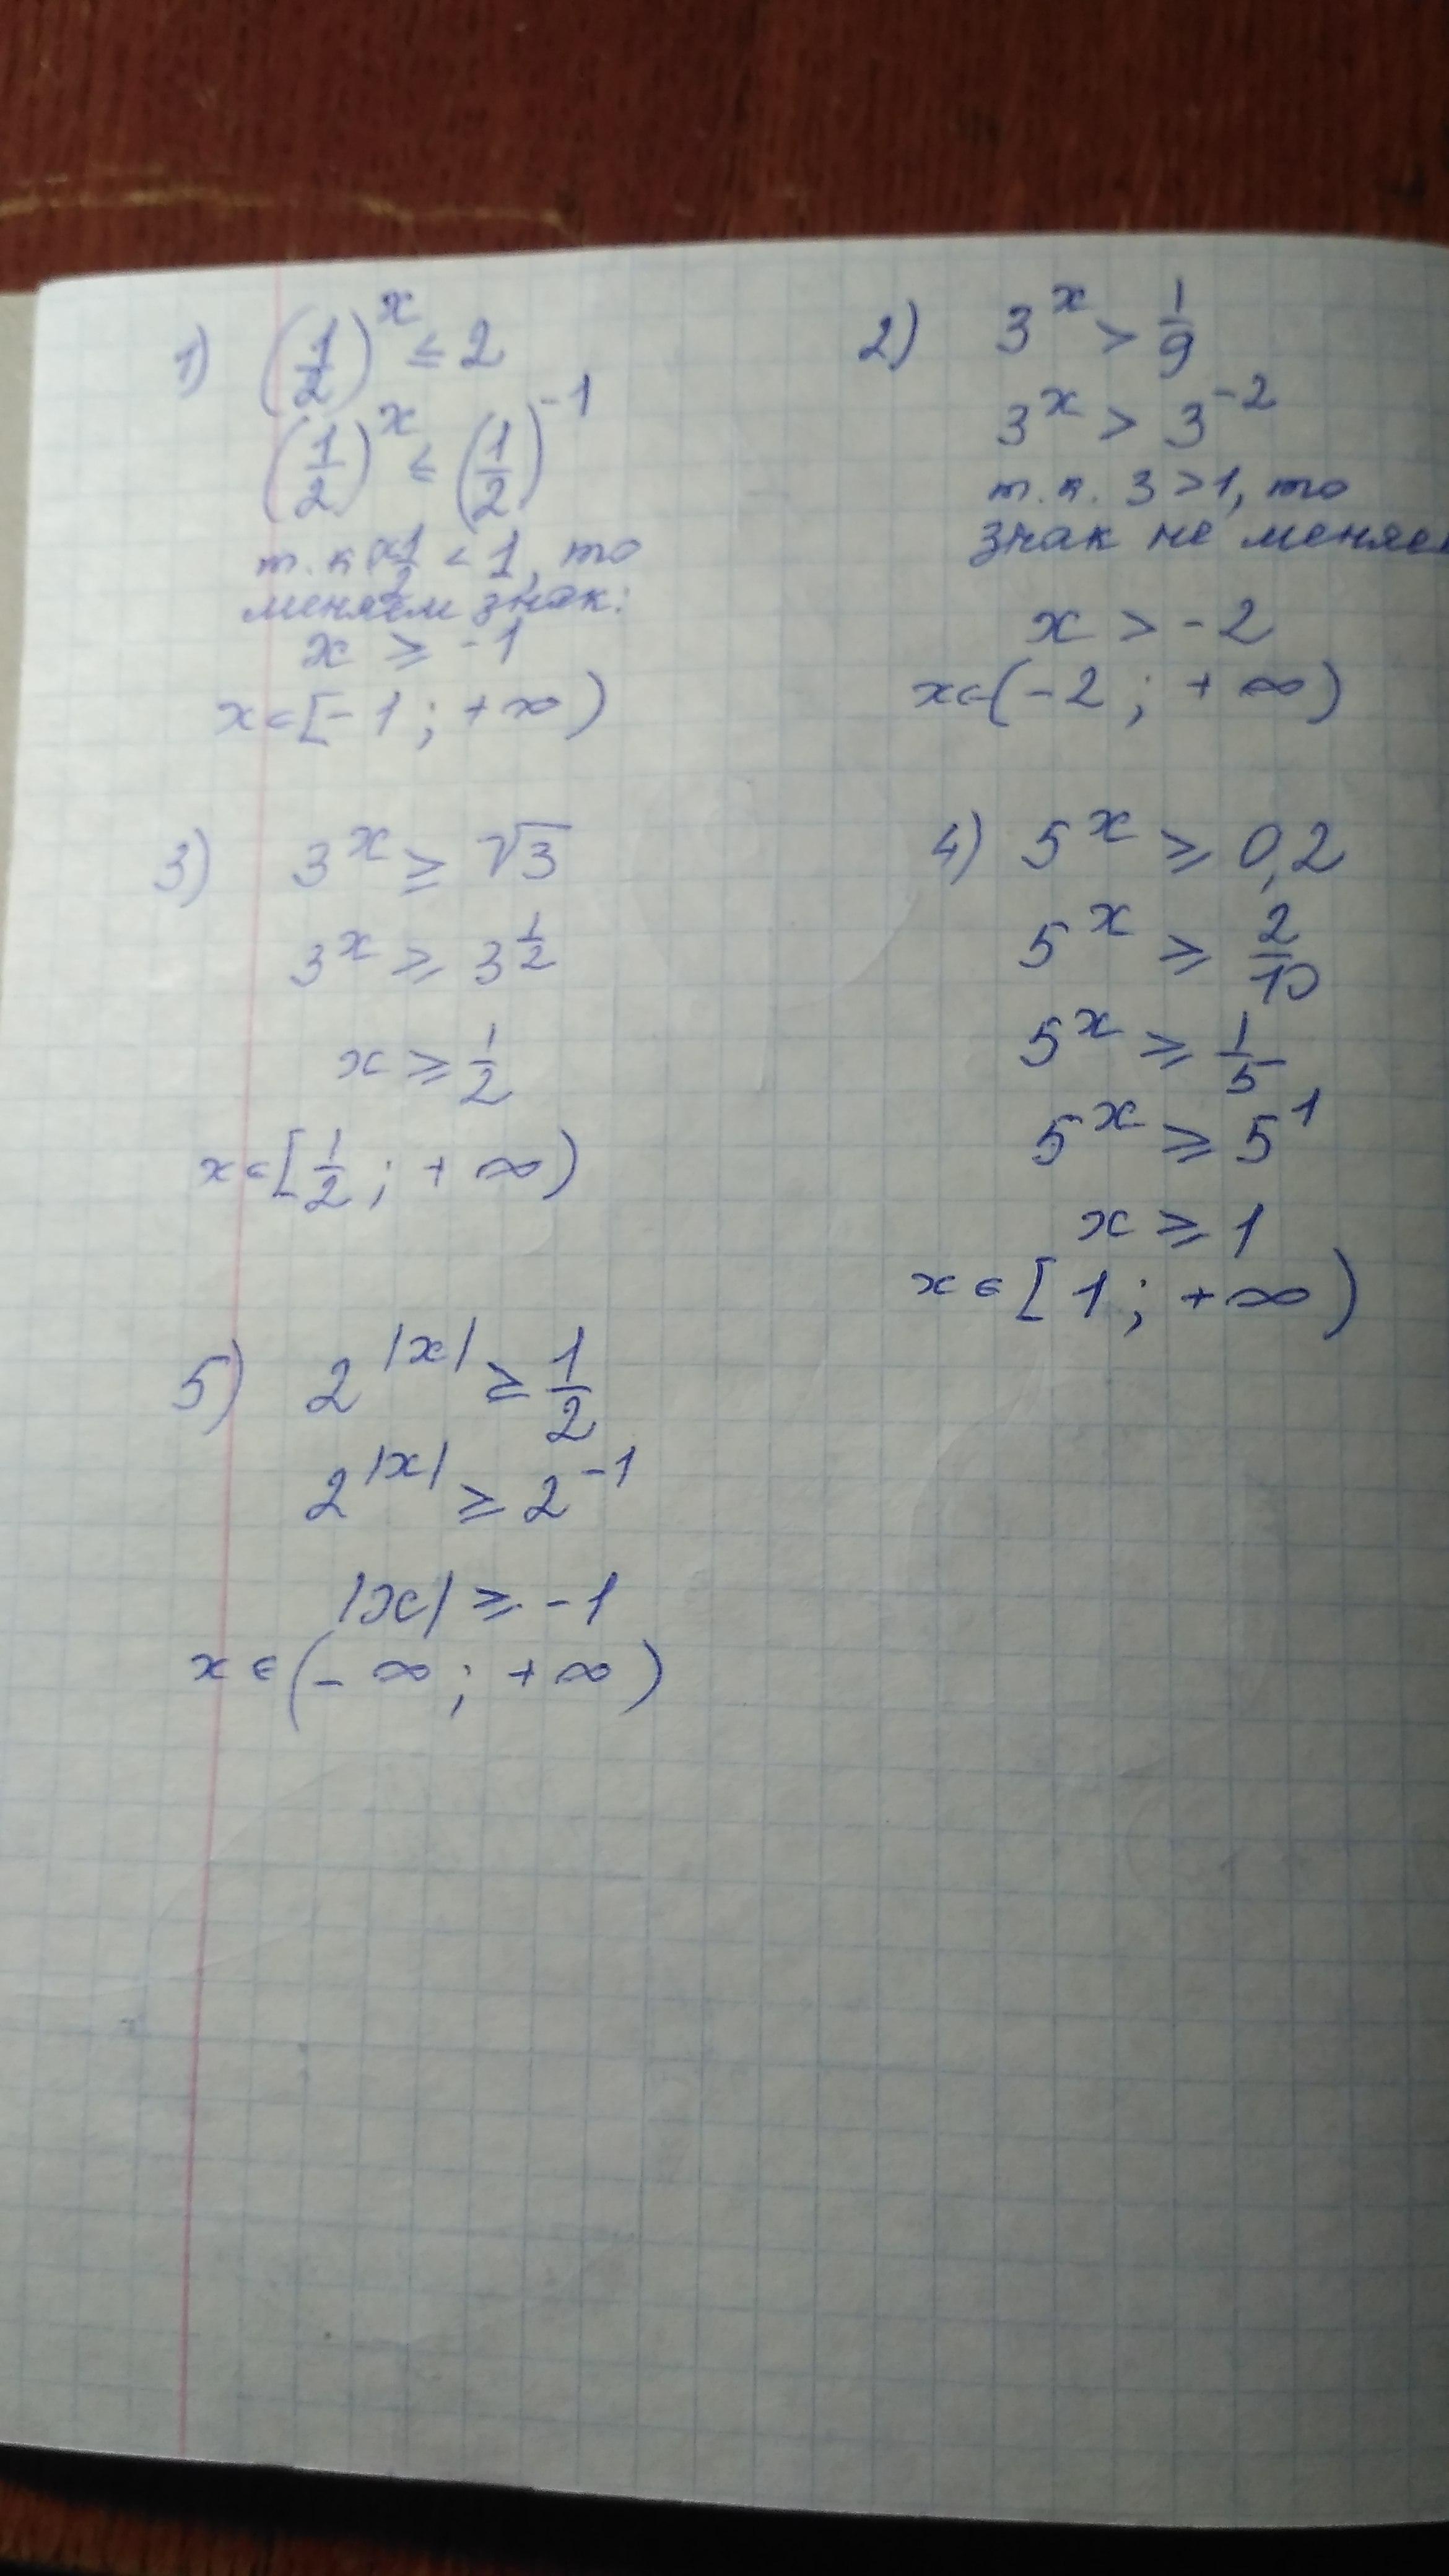 1) (1/2)^x ≤ 2
(1/2)^x ≤ (1/2)^-1
т.к 1/2 < 1, то
меняем знак:
x ≥ -1
x∈[-1; +∞)
2) 3^x > 1/9
3^x > 3^-2
т.к. 3>1, то
знак не меняем
x > -2
x∈(-2; +∞)
3) 3^x ≥ √3
3^x ≥ 3^1/2
x ≥ 1/2
x∈[1/2; +∞)
4) 5^x ≥ 0,2
5^x ≥ 2/10
5^x ≥ 1/5
5^x ≥ 5^1
x ≥ 1
x∈[1; +∞)
5) 2^|x| ≥ 1/2
2^|x| ≥ 2^-1
|x| ≥ -1
x∈(-∞; +∞)